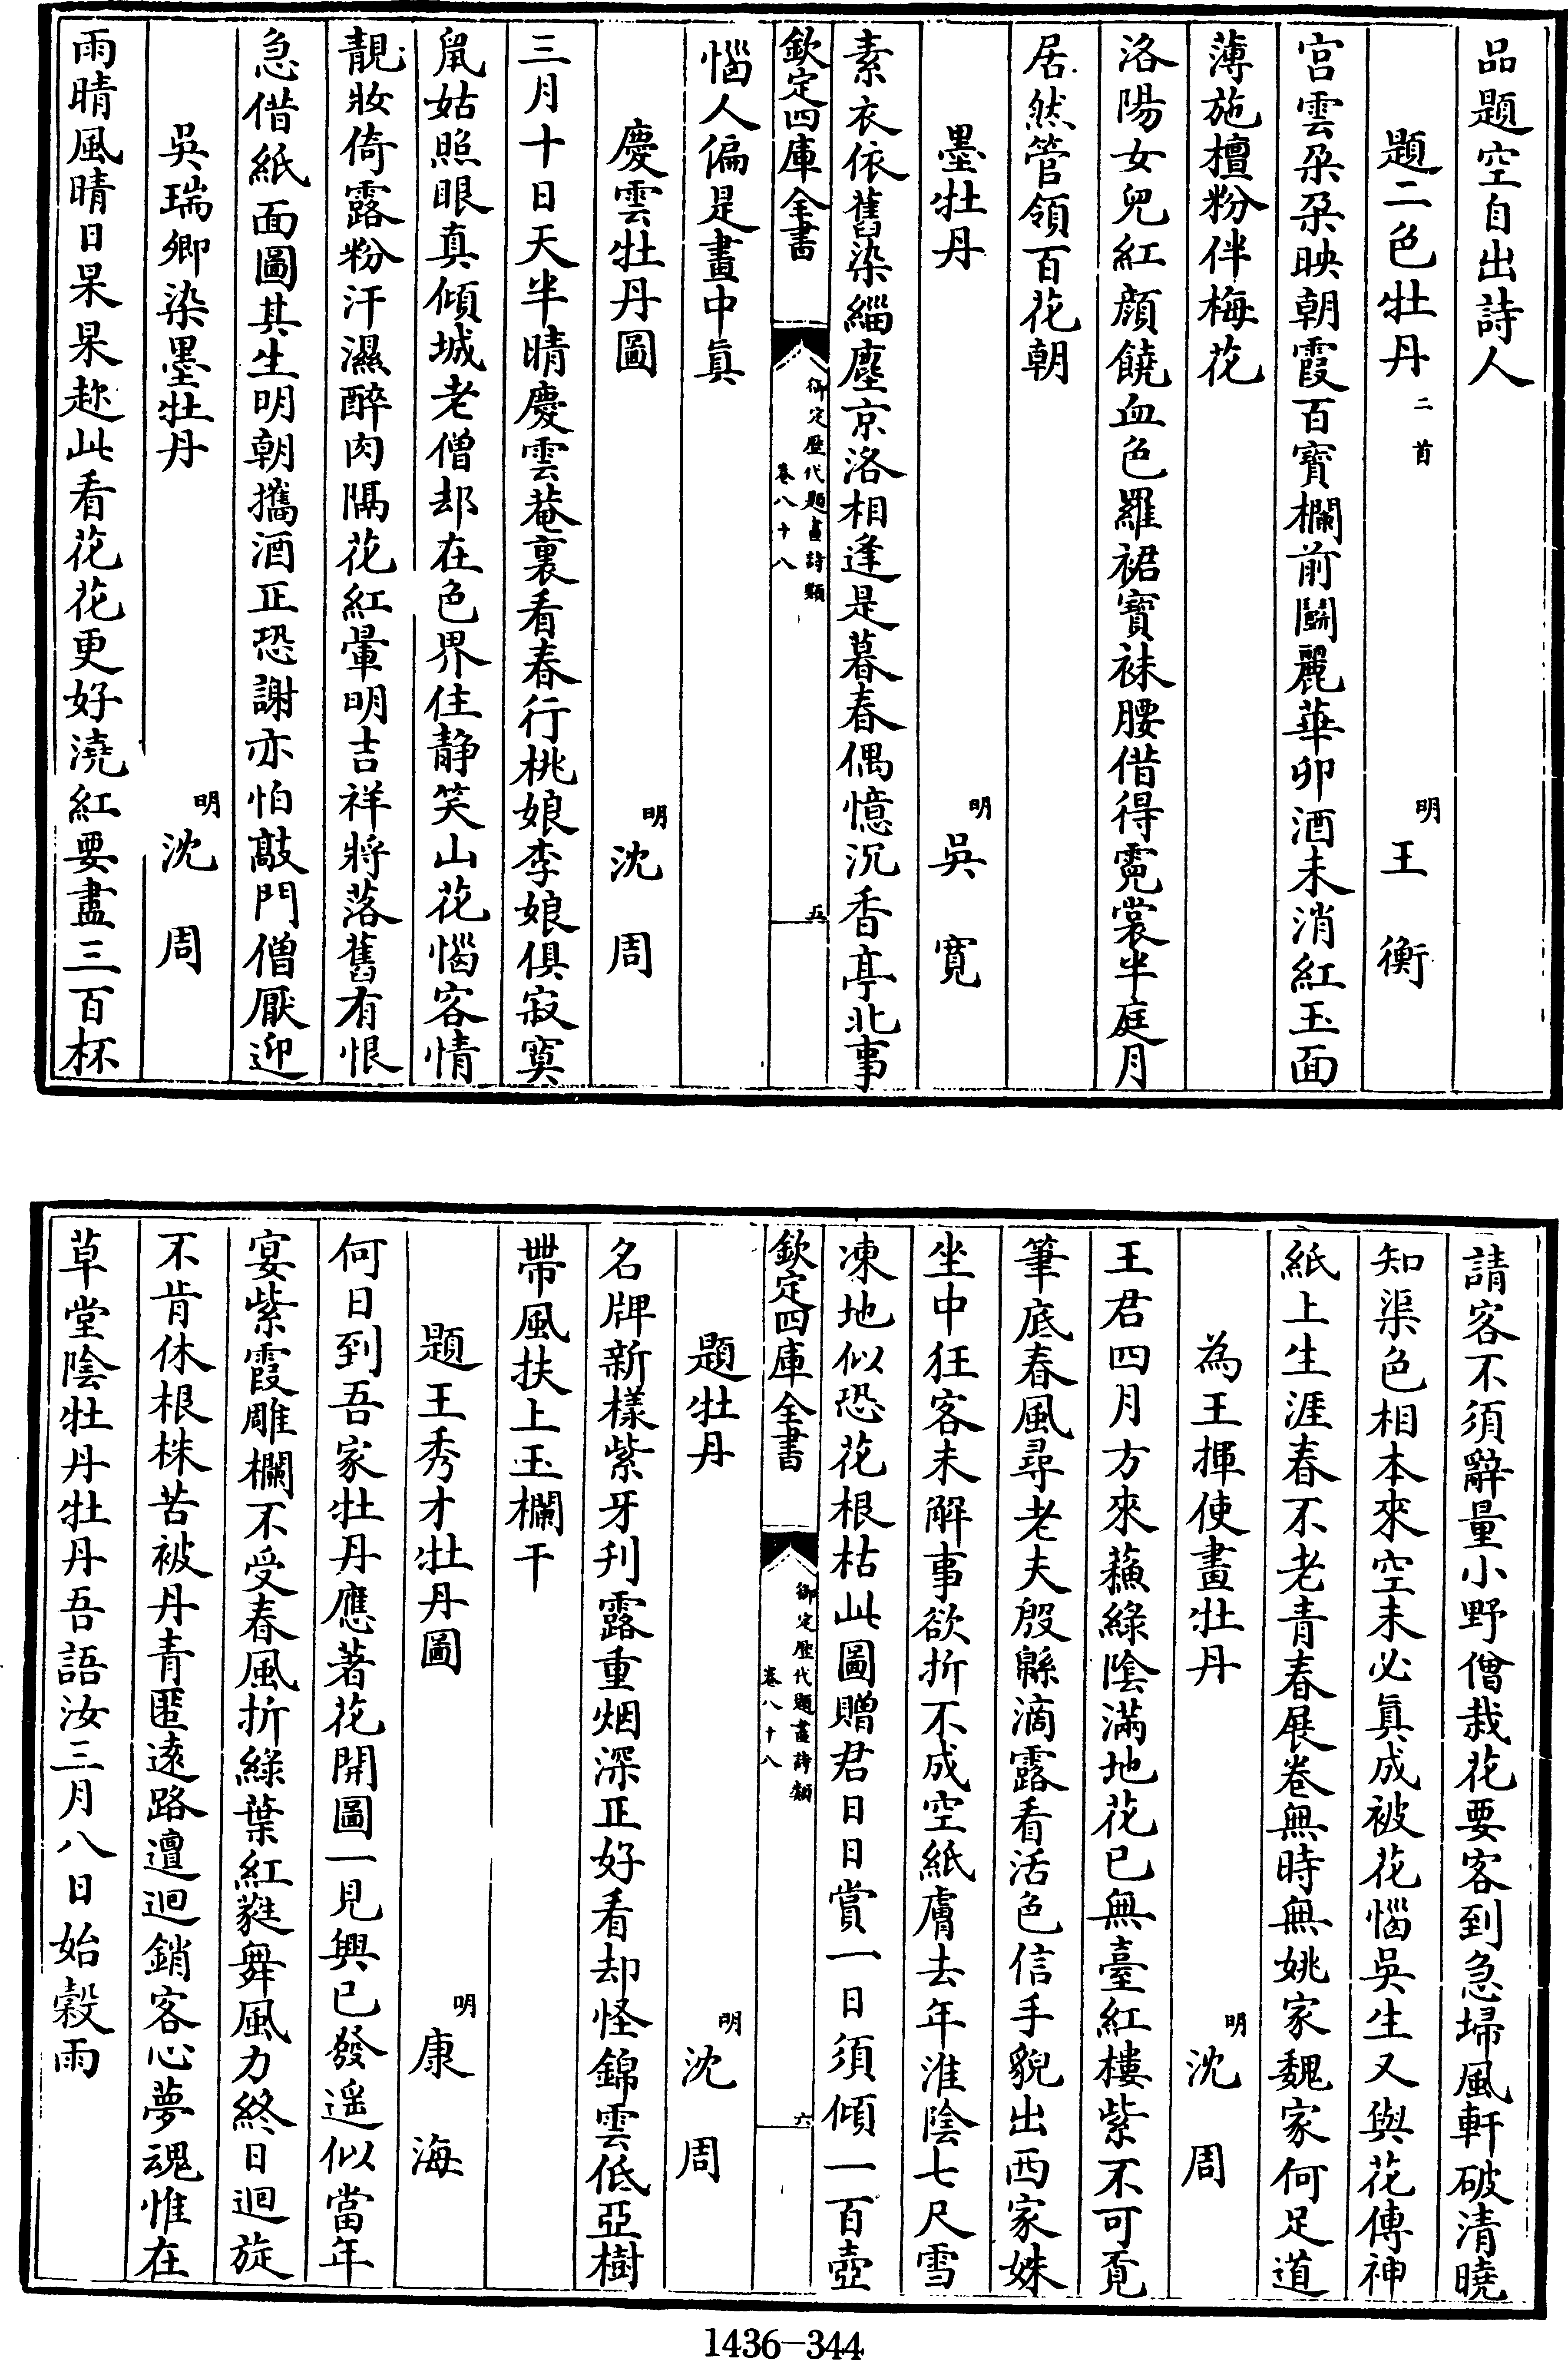 品題空自出詩人
題二色牡丹二首 明王衡
宫雲朶朶映朝霞百寳欄前鬭麗華卯酒未消紅玉面
薄施檀粉伴梅花
洛陽女兒紅顔饒血色羅裙寳袜腰借得霓裳半庭月
居然管領百花朝
墨牡丹 明吳寛
素衣依舊染緇塵京洛相逢是暮春偶憶沉香亭北事
欽定四庫全書 御定歴代題畫詩類 卷八十八 五
惱人偏是畫中眞
慶雲牡丹圖 明沈周
三月十日天半晴慶雲菴裏看春行桃娘李娘俱寂寞
鼠姑照眼真傾城老僧却在色界住静笑山花惱客情
靚妝倚露粉汗濕醉肉隔花紅暈明吉祥將落舊有恨
急借紙面圖其生明朝攜酒正恐謝亦怕敲門僧厭迎
吳瑞卿染墨牡丹 明沈周
雨晴風晴日杲杲趂此看花花更好澆紅要盡三百杯
請客不須辭量小野僧栽花要客到急埽風軒破清曉
知渠色相本來空未必眞成被花惱吳生又與花傳神
紙上生涯春不老青春展卷無時無姚家魏家何足道
為王揮使畫牡丹 明沈周
王君四月方來蘓綠陰滿地花已無臺紅樓紫不可覓
筆底春風尋老夫殷緜滴露看活色信手貌出西家姝
坐中狂客未解事欲折不成空紙膚去年淮陰七尺雪
凍地似恐花根枯此圖贈君日日賞一日須傾一百壺
欽定四庫全書 御定歴代題畫詩類 卷八十八 六
題牡丹 明沈周
名牌新樣紫牙刋露重烟深正好看却怪錦雲低亞樹
帶風扶上玉欄干
題王秀才牡丹圖 明康海
何日到吾家牡丹應著花開圖一見興已發遥似當年
宴紫霞雕欄不受春風折綠葉紅蕤舞風力終日迴旋
不肯休根株苦被丹青匿遠路邅迴銷客心夢魂惟在
草堂陰牡丹牡丹吾語汝三月八日始穀雨
1436-344